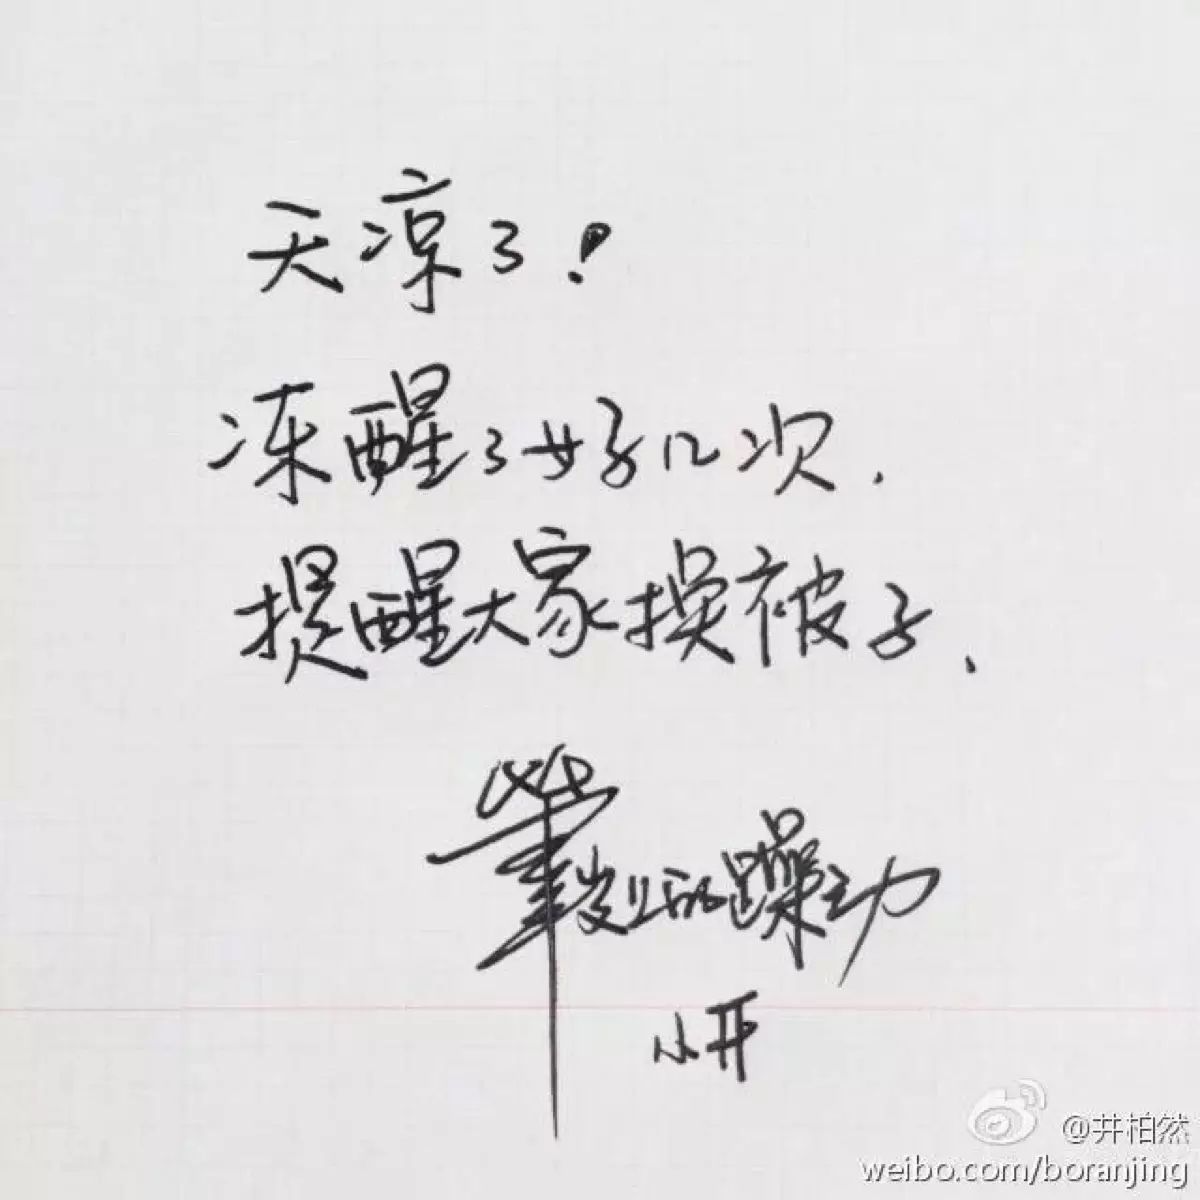 天凉了!
冻醒了好几次.
提醒大家换被子.
筆 的躁动
小井
@井柏然
weibo.com/boranjing